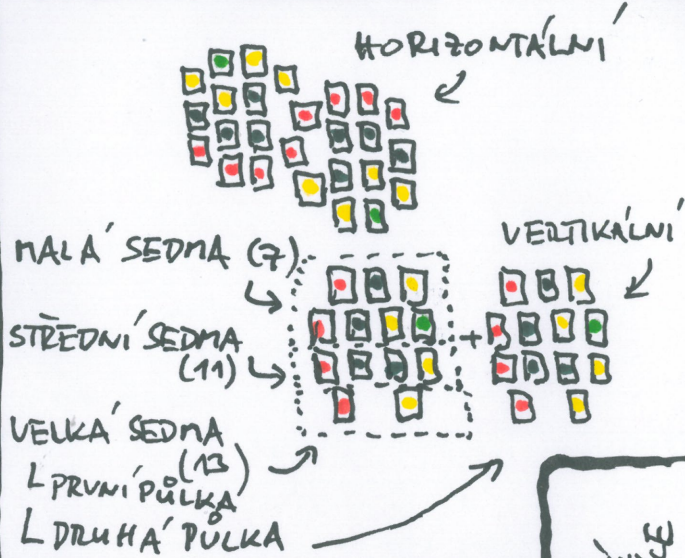 HORIZONTÁLNÍ
VERTIKÁLNÍ
MALÁ SEDMA (7)
STŘEDNÍ SEDMA
(11)
+
VELKÁ SEDMA
(13)
L PRVNÍ PŮLKA
L DRUHÁ PŮLKA